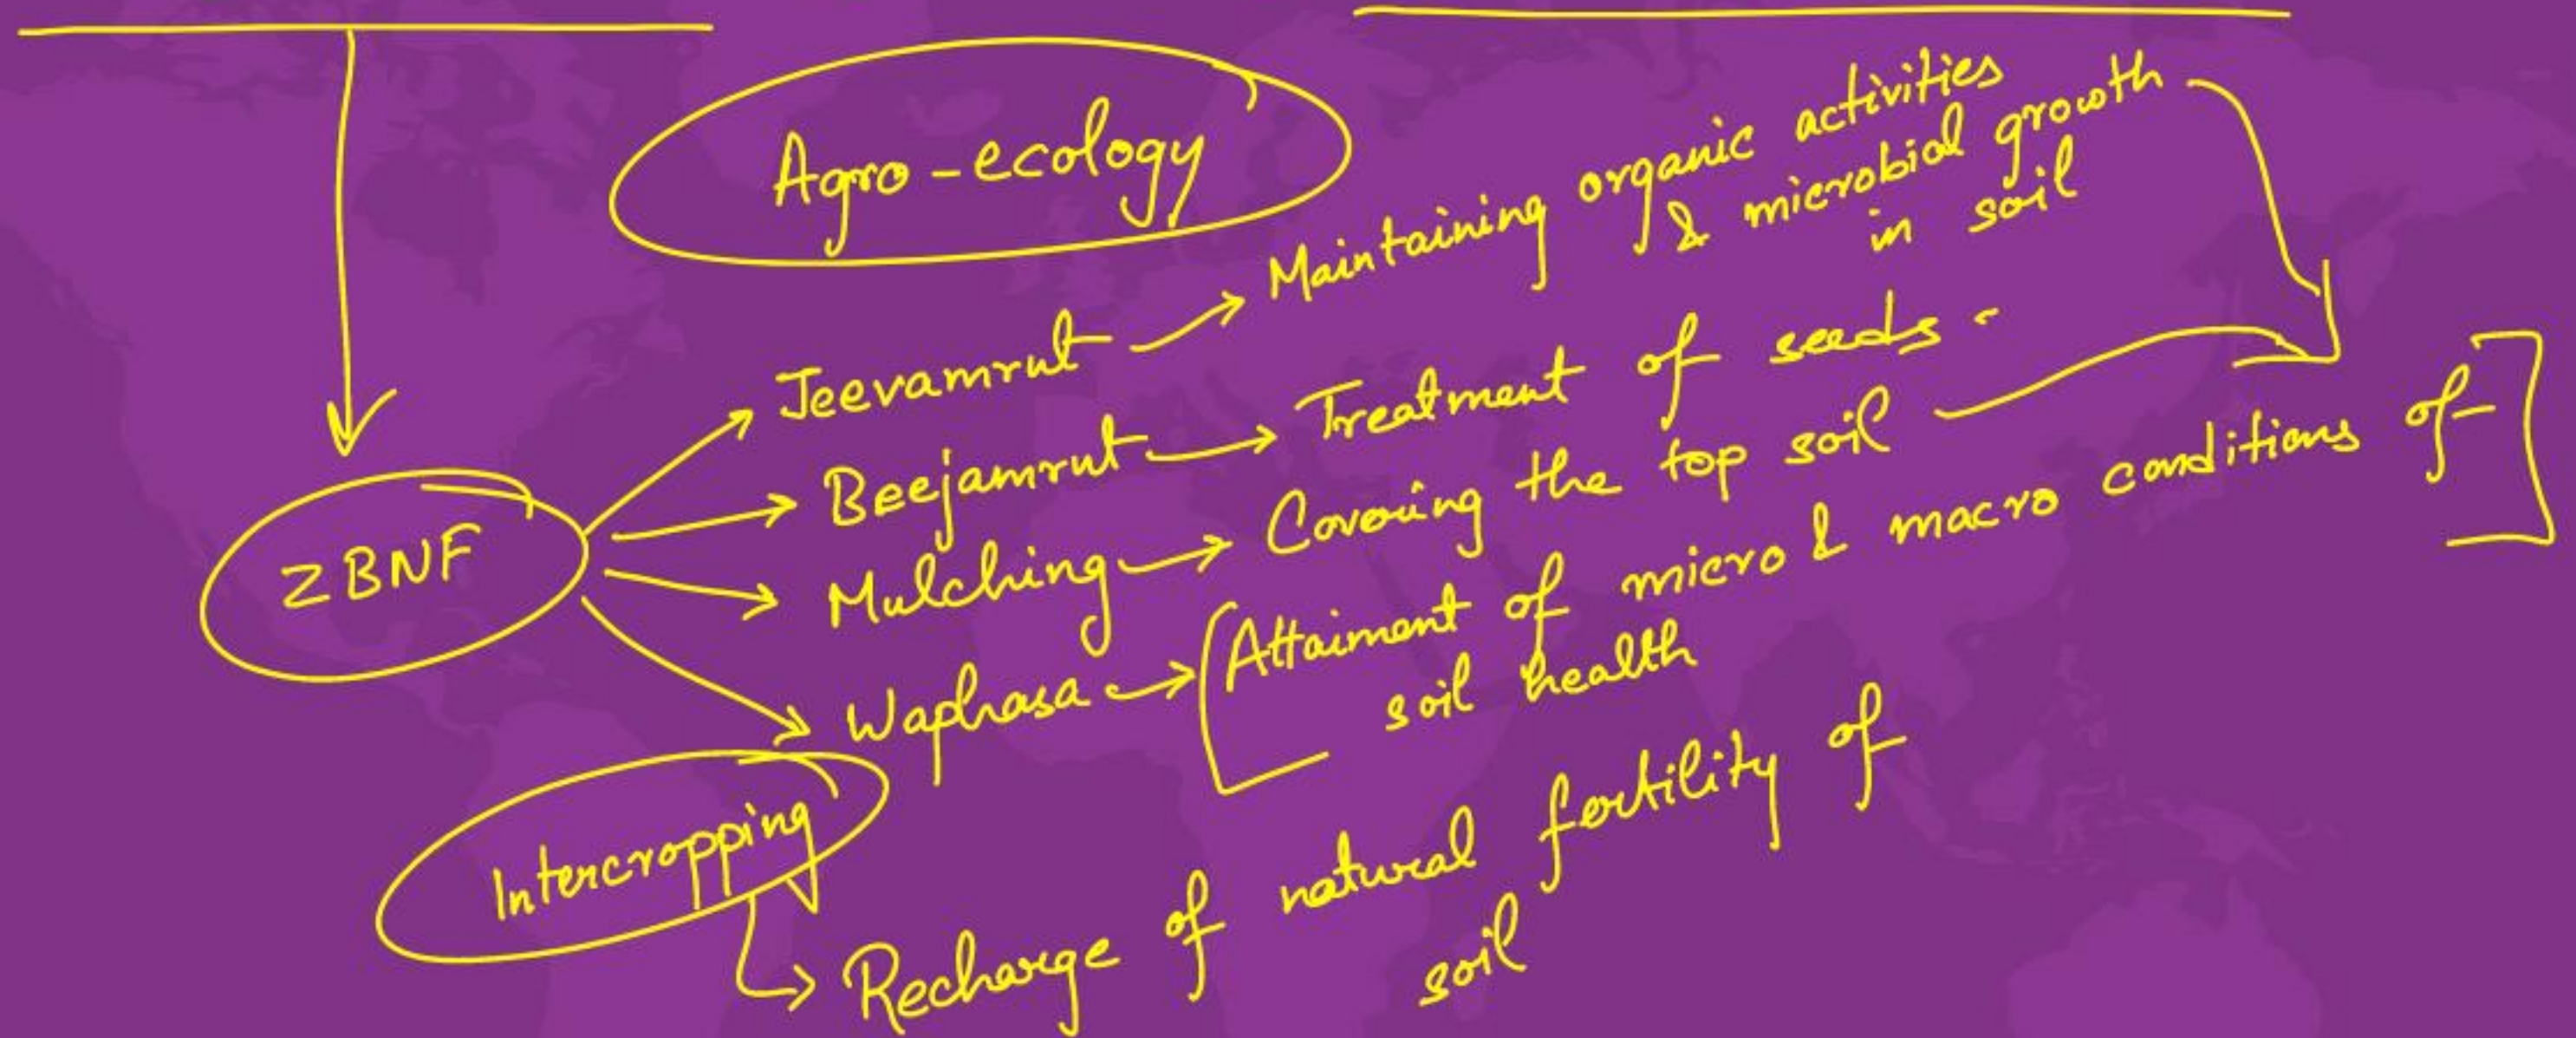 Agro-ecology
ZBNF
Jeevamrut → Maintaining organic activities
& microbial growth
in soil
Beejamrut → Treatment of seeds.
Mulching → Covering the top soil
Waphasa → Attaiment of micro & macro conditions of
soil health
Intercropping
Recharge of natural fertility of
soil